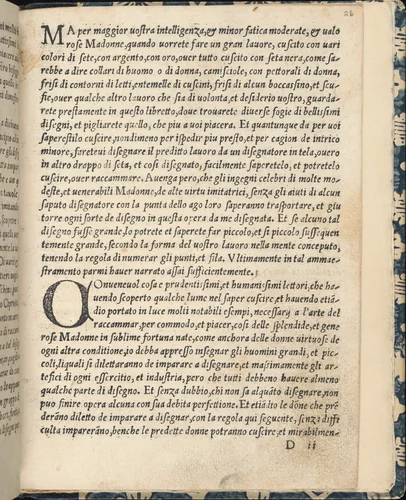 28
MA per maggior uostra intelligenza, et minor fatica moderate, et ualo
rose Madonne, quando uorrete fare un gran lauoro, cuscito con uari
colori di sete, con argento, con oro, ouer tutto cuscito con seta nera, come sa-
rebbe a dire collari di huomo o di donna, camisciole, con pettorali di donna,
frisi di contorni di letti, entemelle di cuscini, frisi di alcun boccassino, et scu-
fie, ouer qualche altro lauoro che sia di uolonta, et desiderio uostro, guarda-
rete prestamente in questo libretto, doue trouarete diuerse fogie di bellissimi
disegni, et pigliarete quello, che piu a uoi piacera. Et quantunque da per uoi
saperestilo cuscire, nondimeno per ispedir piu presto, et per cagion di intrico
minore, fareteui disegnare il predito lauoro da un disegnatore in tela, ouero
in altro drappo di seta, et cosi disegnato, facilmente sapretelo, et potretelo
cuscire, ouer raccammare. Auenga pero, che gli ingegni celebri di molte mo-
deste, et uenerabili Madonne, de alte uirtu imitatrici, senza gli aiuti di alcun
saputo disegnatore con la punta dello ago loro saperanno trasportare, et giu
torre ogni sorte de disegno in questa opera da me disegnata. Et se alcuno tal
disegno fusse grande, lo potrete et saperete far piccolo, et si piccolo sussequen
temente grande, secondo la forma del uostro lauoro nella mente conceputo,
tenendo la regola di numerar gli punti, et fila. Vltimamente in tal ammae-
stramento parmi hauer narrato assai sufficientemente.
COnueneuol cosa e prudentissimi, et humanissimi lettori, che ha-
uendo scoperto qualche lume nel saper cuscire, et hauendo etia-
dio portato in luce molti notabili esempi, necessarij a l'arte del
raccammar, per commodo, et piacer, cosi delle splendide, et gene
rose Madonne in sublime fortuna nate, come anchora delle donne uirtuose de
ogni altra conditione, io debba appresso insegnar gli huomini grandi, et pic-
coli, liquali si dilettaranno de imparare a disegnare, et masimamente gli ar-
tefici di ogni essercitio, et industria, pero che tutti debbeno hauere almeno
qualche parte di disegno. Et senza dubbio, chi non sa alquāto disegnare, non
puo finire opera alcuna con sua debita perfettione. Et etiādio le dōne che pré
deráno diletto de imparare a disegnar, con la regola qui seguente, senza diffi
culta impareráno, benche le predette donne potranno cuscire, et mirabilmen-
D ii